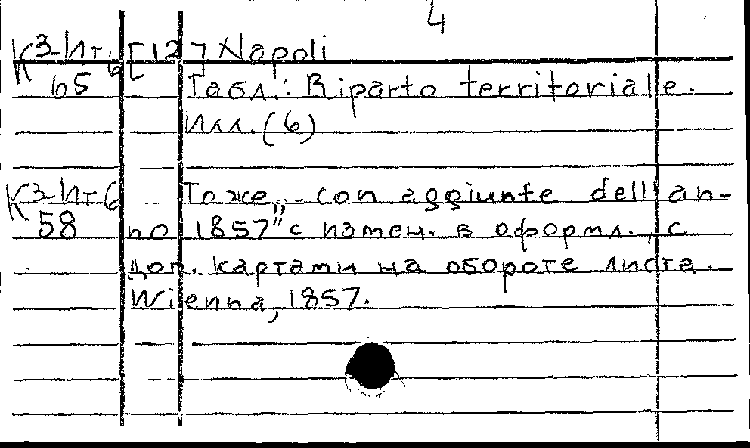 4
К 3-Ит 6 [12] Napoli
65 Табл.: Riparto territoriale.
Илл. (6)
К 3-Ит 6 То же, „con aggiunte dell'an-
58 no 1857" с измен. в оформл., с
доп. картами на обороте листа.
Wienna, 1857.